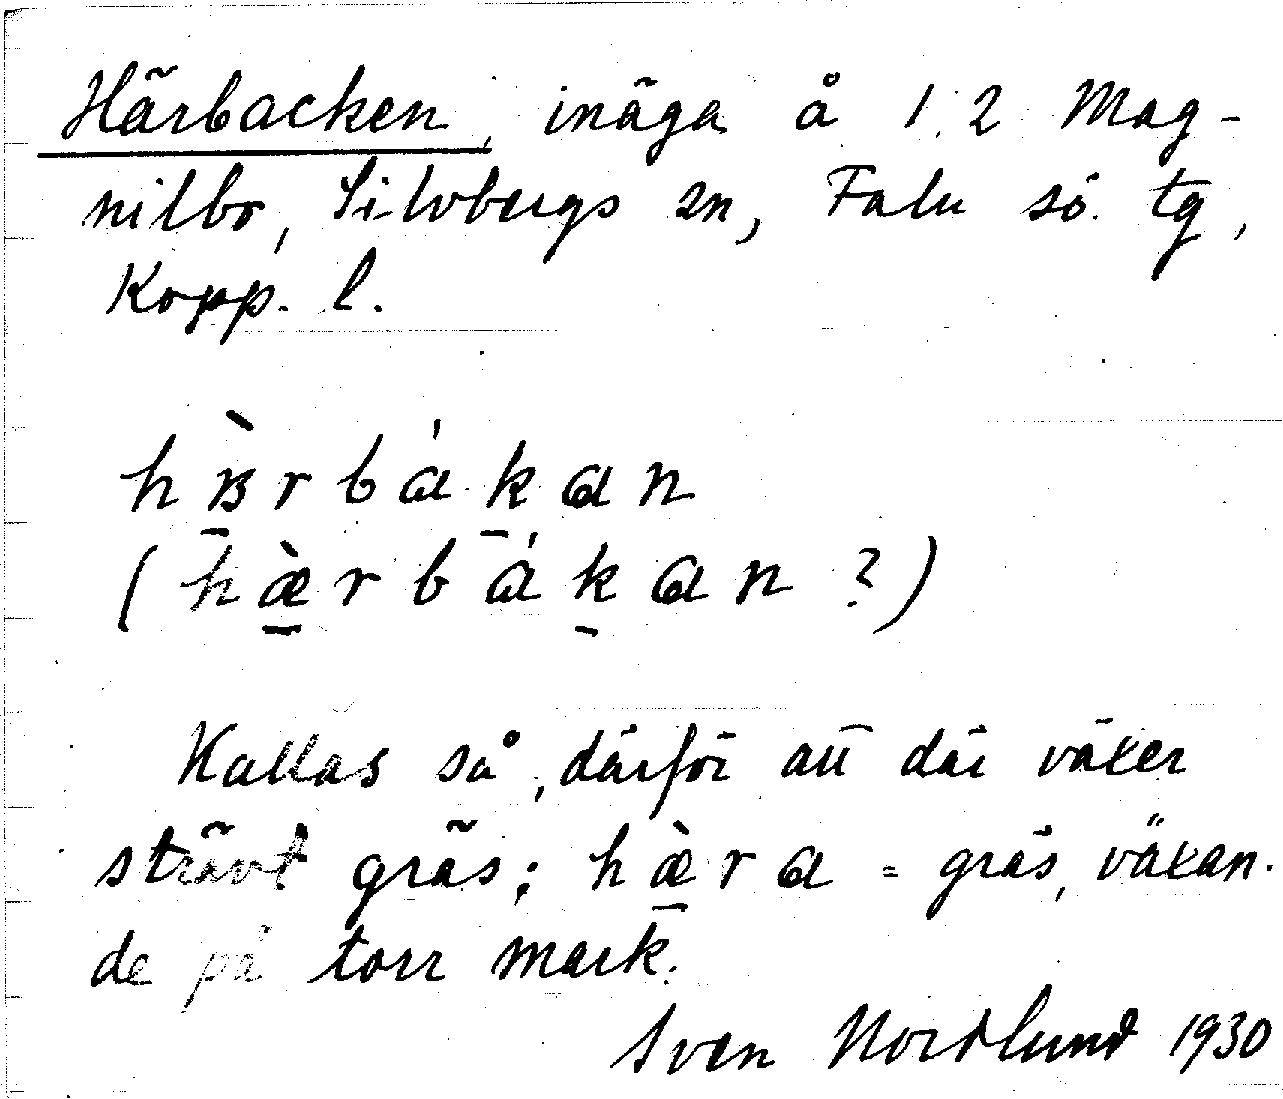 Härbacken, inäga å 1:2 Mag-
nilbo, Silvbergs sn, Falu sö. tg,
Kopp. l.
hàrbákan
(hæ̀rbákan?)
Kallas så, därför att där växer
strävt gräs; hæ̀ra = gräs, växan-
de på torr mark.
Sven Nordlund 1930